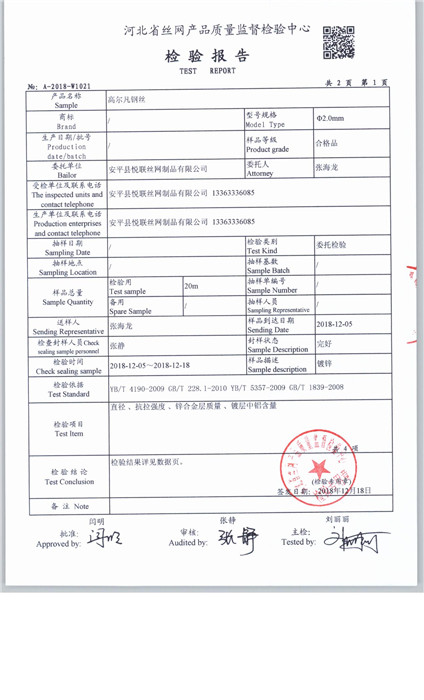 河北省丝网产品质量监督检验中心
检 验 报 告
TEST REPORT
No: A-2018-W1021 共 2 页 第 1 页
产品名称 Sample 高尔凡钢丝
商标 Brand / 型号规格 Model Type Φ2.0mm
生产日期/批号 Production date/batch / 样品等级 Product grade 合格品
委托单位 Bailor 安平县悦联丝网制品有限公司 委托人 Attorney 张海龙
受检单位及联系电话 The inspected units and contact telephone 安平县悦联丝网制品有限公司 13363336085
生产单位及联系电话 Production enterprises and contact telephone 安平县悦联丝网制品有限公司 13363336085
抽样日期 Sampling Date / 检验类别 Test Kind 委托检验
抽样地点 Sampling Location / 抽样基数 Sample Batch /
样品总量 Sample Quantity 检验用 Test sample 20m 抽样单编号 Sample Number /
备用 Spare Sample / 抽样人员 Sampling Representative /
送样人 Sending Representative 张海龙 样品到达日期 Sending Date 2018-12-05
检查封样人员 Check sealing sample personnel 张静 封样状态 Sample Description 完好
检验时间 Check sealing sample 2018-12-05~2018-12-18 样品描述 Sample description 镀锌
检验依据 Test Standard YB/T 4190-2009 GB/T 228.1-2010 YB/T 5357-2009 GB/T 1839-2008
检验项目 Test Item 直径、抗拉强度、锌合金层质量、镀层中铝含量
共 4 项
检验结论 Test Conclusion 检验结果详见数据页。
(检验专用章)
签发日期: 2018年12月18日
备 注 Note
闫明 张静 刘丽丽
批准: 审核: 主检:
Approved by: Audited by: Tested by: